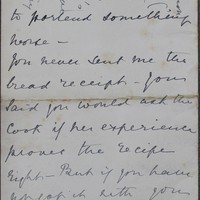 to portend something
worse —
You never sent me the
bread receipt — you
said you would ask the
Cook if her experience
proves the recipe
right — But if you have
with your